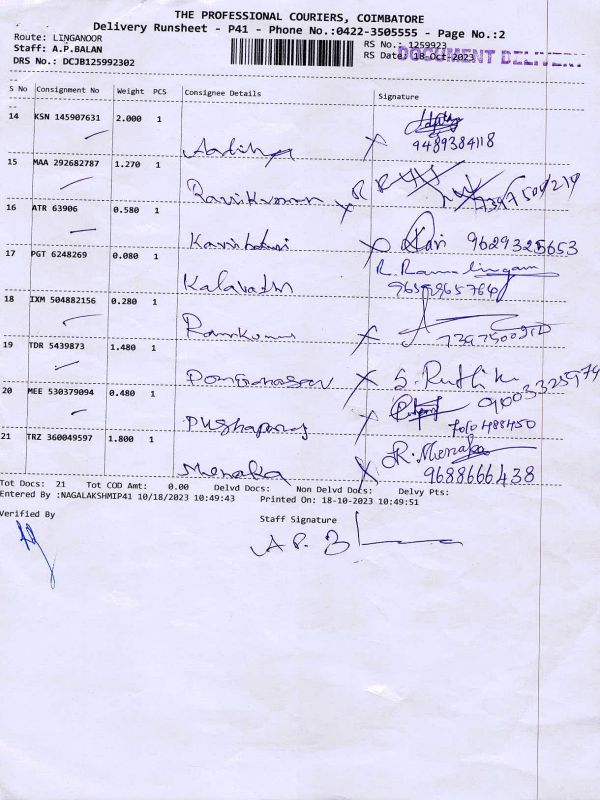 THE PROFESSIONAL COURIERS, COIMBATORE
Delivery Runsheet - P41 - Phone No.:0422-3505555 - Page No.:2
Route: LINGANOOR
RS No.: 1259923
Staff: A.P.BALAN
RS Date: 18-Oct-2023
DOCUMENT DELIVERY
DRS No.: DCJB125992302
S No Consignment No Weight PCS Consignee Details Signature
14 KSN 145907631 2.000 1
9489384118
15 MAA 292682787 1.270 1
Ravikumar
16 ATR 63906 0.580 1
Kavi 9629325653
17 PGT 6248269 0.080 1 R. Ramalingam
Kalavathi
18 IXM 504882156 0.280 1
Ramkumar
19 TDR 5439873 1.480 1
S. Ruthik
20 MEE 530379094 0.480 1
21 TRZ 360049597 1.800 1 R. Menaka
Menaka 9688666438
Tot Docs: 21 Tot COD Amt: 0.00 Delvd Docs: Non Delvd Docs: Delvy Pts:
Entered By :NAGALAKSHMIP41 10/18/2023 10:49:43 Printed On: 18-10-2023 10:49:51
Verified By
Staff Signature
A.P. B